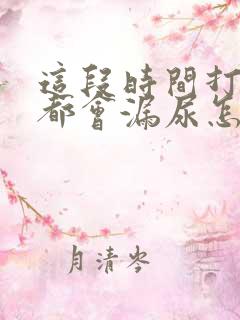 這段時間打
都會漏尿怎
月清岑